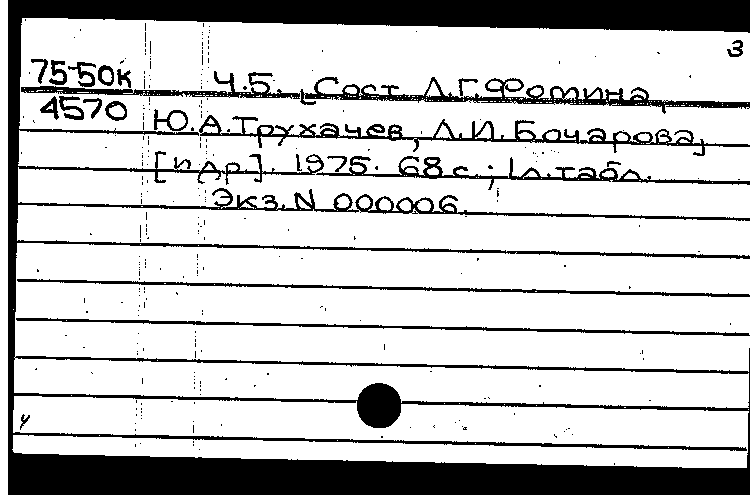 3
75-50к Ч.5. [Сост. Л.Г.Фомина,
4570 Ю.А.Трухачев, Л.И.Бочарова,
[и др.]. 1975. 68 с.; 1 л. табл.
Экз. N 000006.